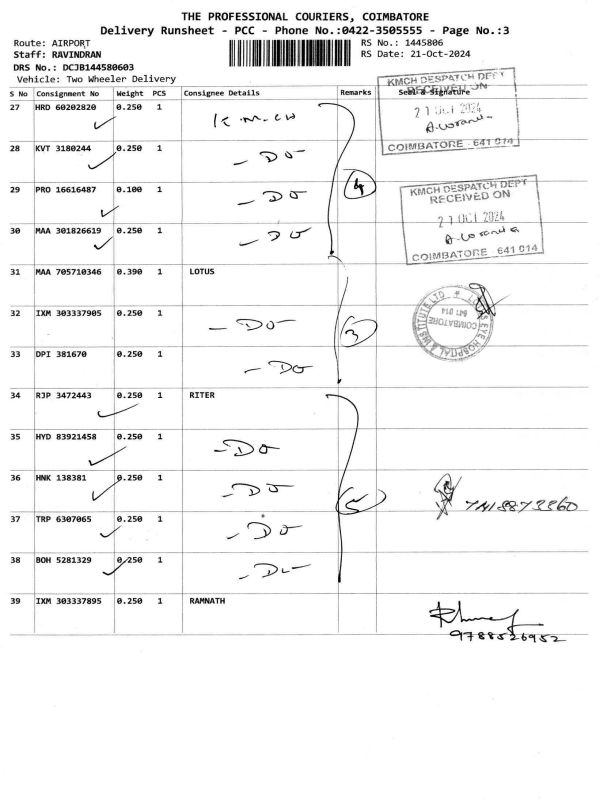 THE PROFESSIONAL COURIERS, COIMBATORE
Delivery Runsheet - PCC - Phone No.:0422-3505555 - Page No.:3
Route: AIRPORT
RS No.: 1445806
Staff: RAVINDRAN
RS Date: 21-Oct-2024
DRS No.: DCJB144580603
Vehicle: Two Wheeler Delivery
S No Consignment No Weight PCS Consignee Details Remarks Seal & Signature
27 HRD 60202820 0.250 1
28 KVT 3180244 0.250 1 - DO -
29 PRO 16616487 0.100 1 - DO
30 MAA 301826619 0.250 1 - DO
4
KMCH DESPATCH DEPT
RECEIVED ON
21 OCT 2024
COIMBATORE - 641 014
KMCH DESPATCH DEPT
RECEIVED ON
21 OCT 2024
COIMBATORE 641 014
31 MAA 705710346 0.390 1 LOTUS
32 IXM 303337905 0.250 1 - DO -
33 DPI 381670 0.250 1 - DO
3
EYE HOSPITAL & INSTITUTE LTD
COIMBATORE
641 014
34 RJP 3472443 0.250 1 RITER
35 HYD 83921458 0.250 1 - DO
36 HNK 138381 0.250 1 - DO
37 TRP 6307065 0.250 1 - DO
38 BOH 5281329 0.250 1 - DO -
5
39 IXM 303337895 0.250 1 RAMNATH
9788526952